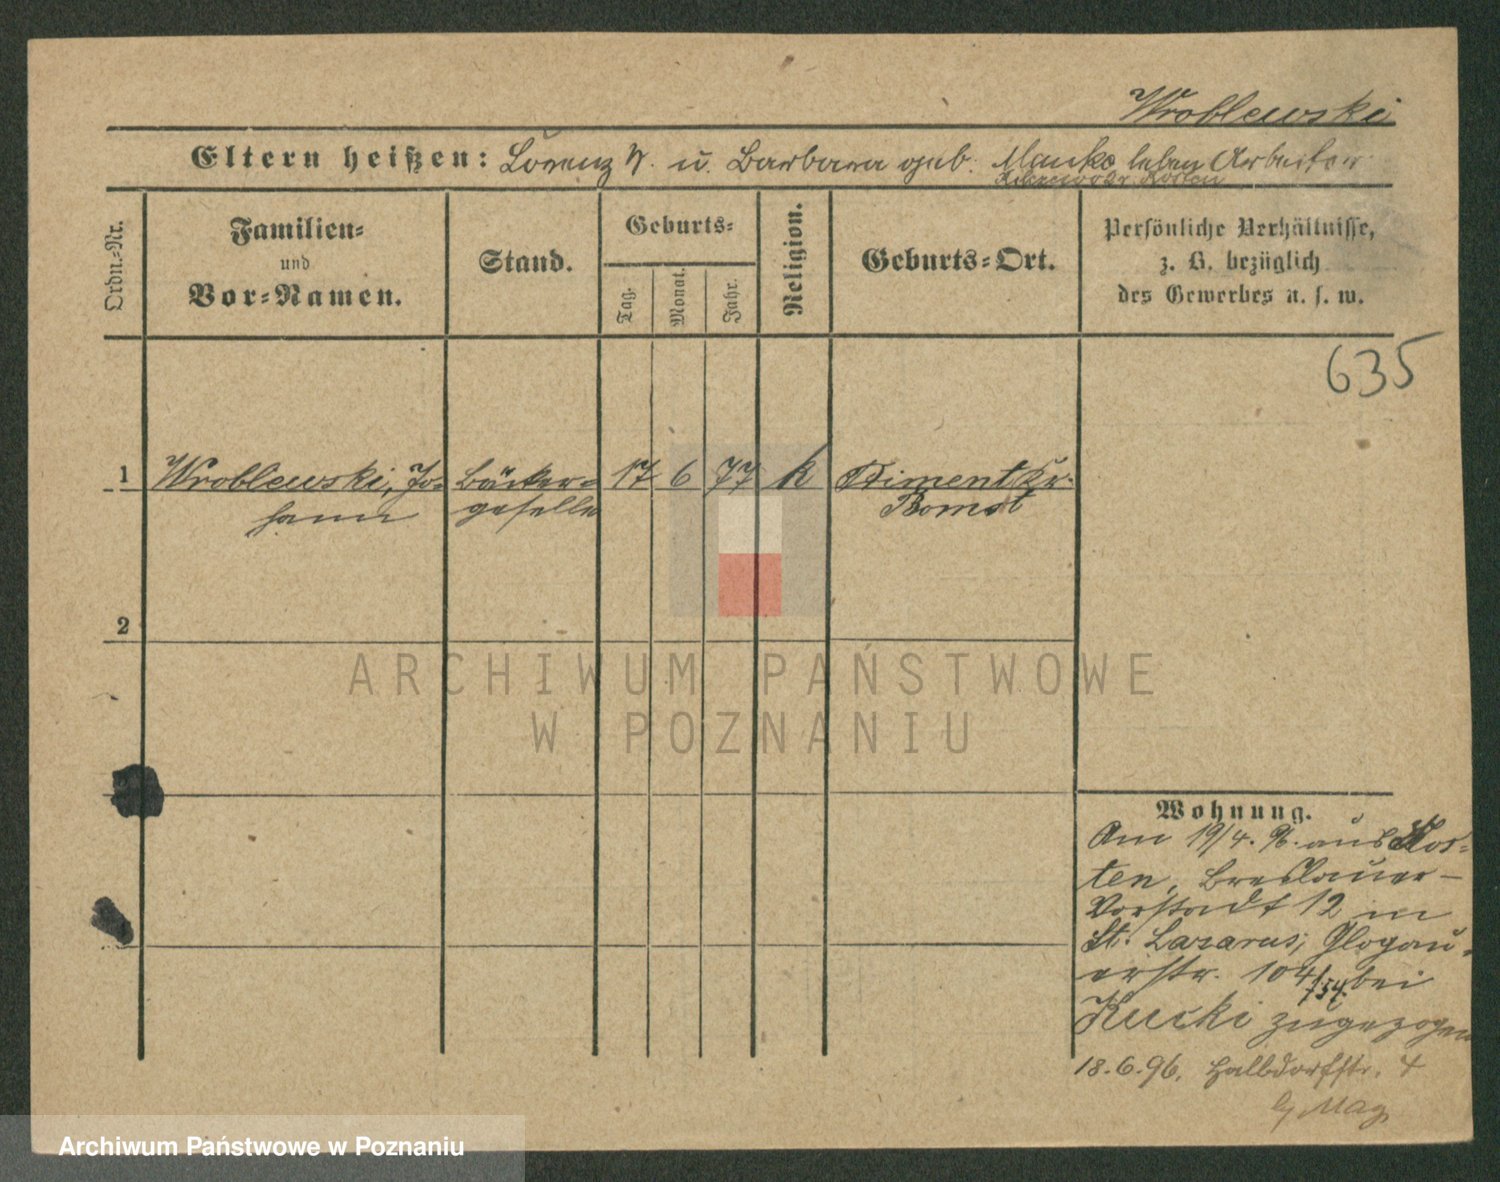 Wroblewski
Eltern heißen: Lorenz W. u. Barbara geb. Manka leben Arbeiter
Kosten
Ordn.-Nr.
Familien-
und
Vor-Namen.
Stand.
Geburts-
Tag.
Monat.
Jahr.
Religion.
Geburts-Ort.
Persönliche Verhältnisse,
z. B. bezüglich
des Gewerbes u. s. w.
635
1 Wroblewski, Jo- Bäcker- 17 6 77 k Diment Kr.
hann geselle Bomst
2
ARCHIWUM PAŃSTWOWE
W POZNANIU
Wohnung.
Am 19/4. 96. aus Kos-
ten, Breslauer-
Vorstadt 12 in
St. Lazarus, Glogau-
erstr. 104/ bei
Kucki zugezogen
18.6.96. Halbdorfstr. 4
Archiwum Państwowe w Poznaniu